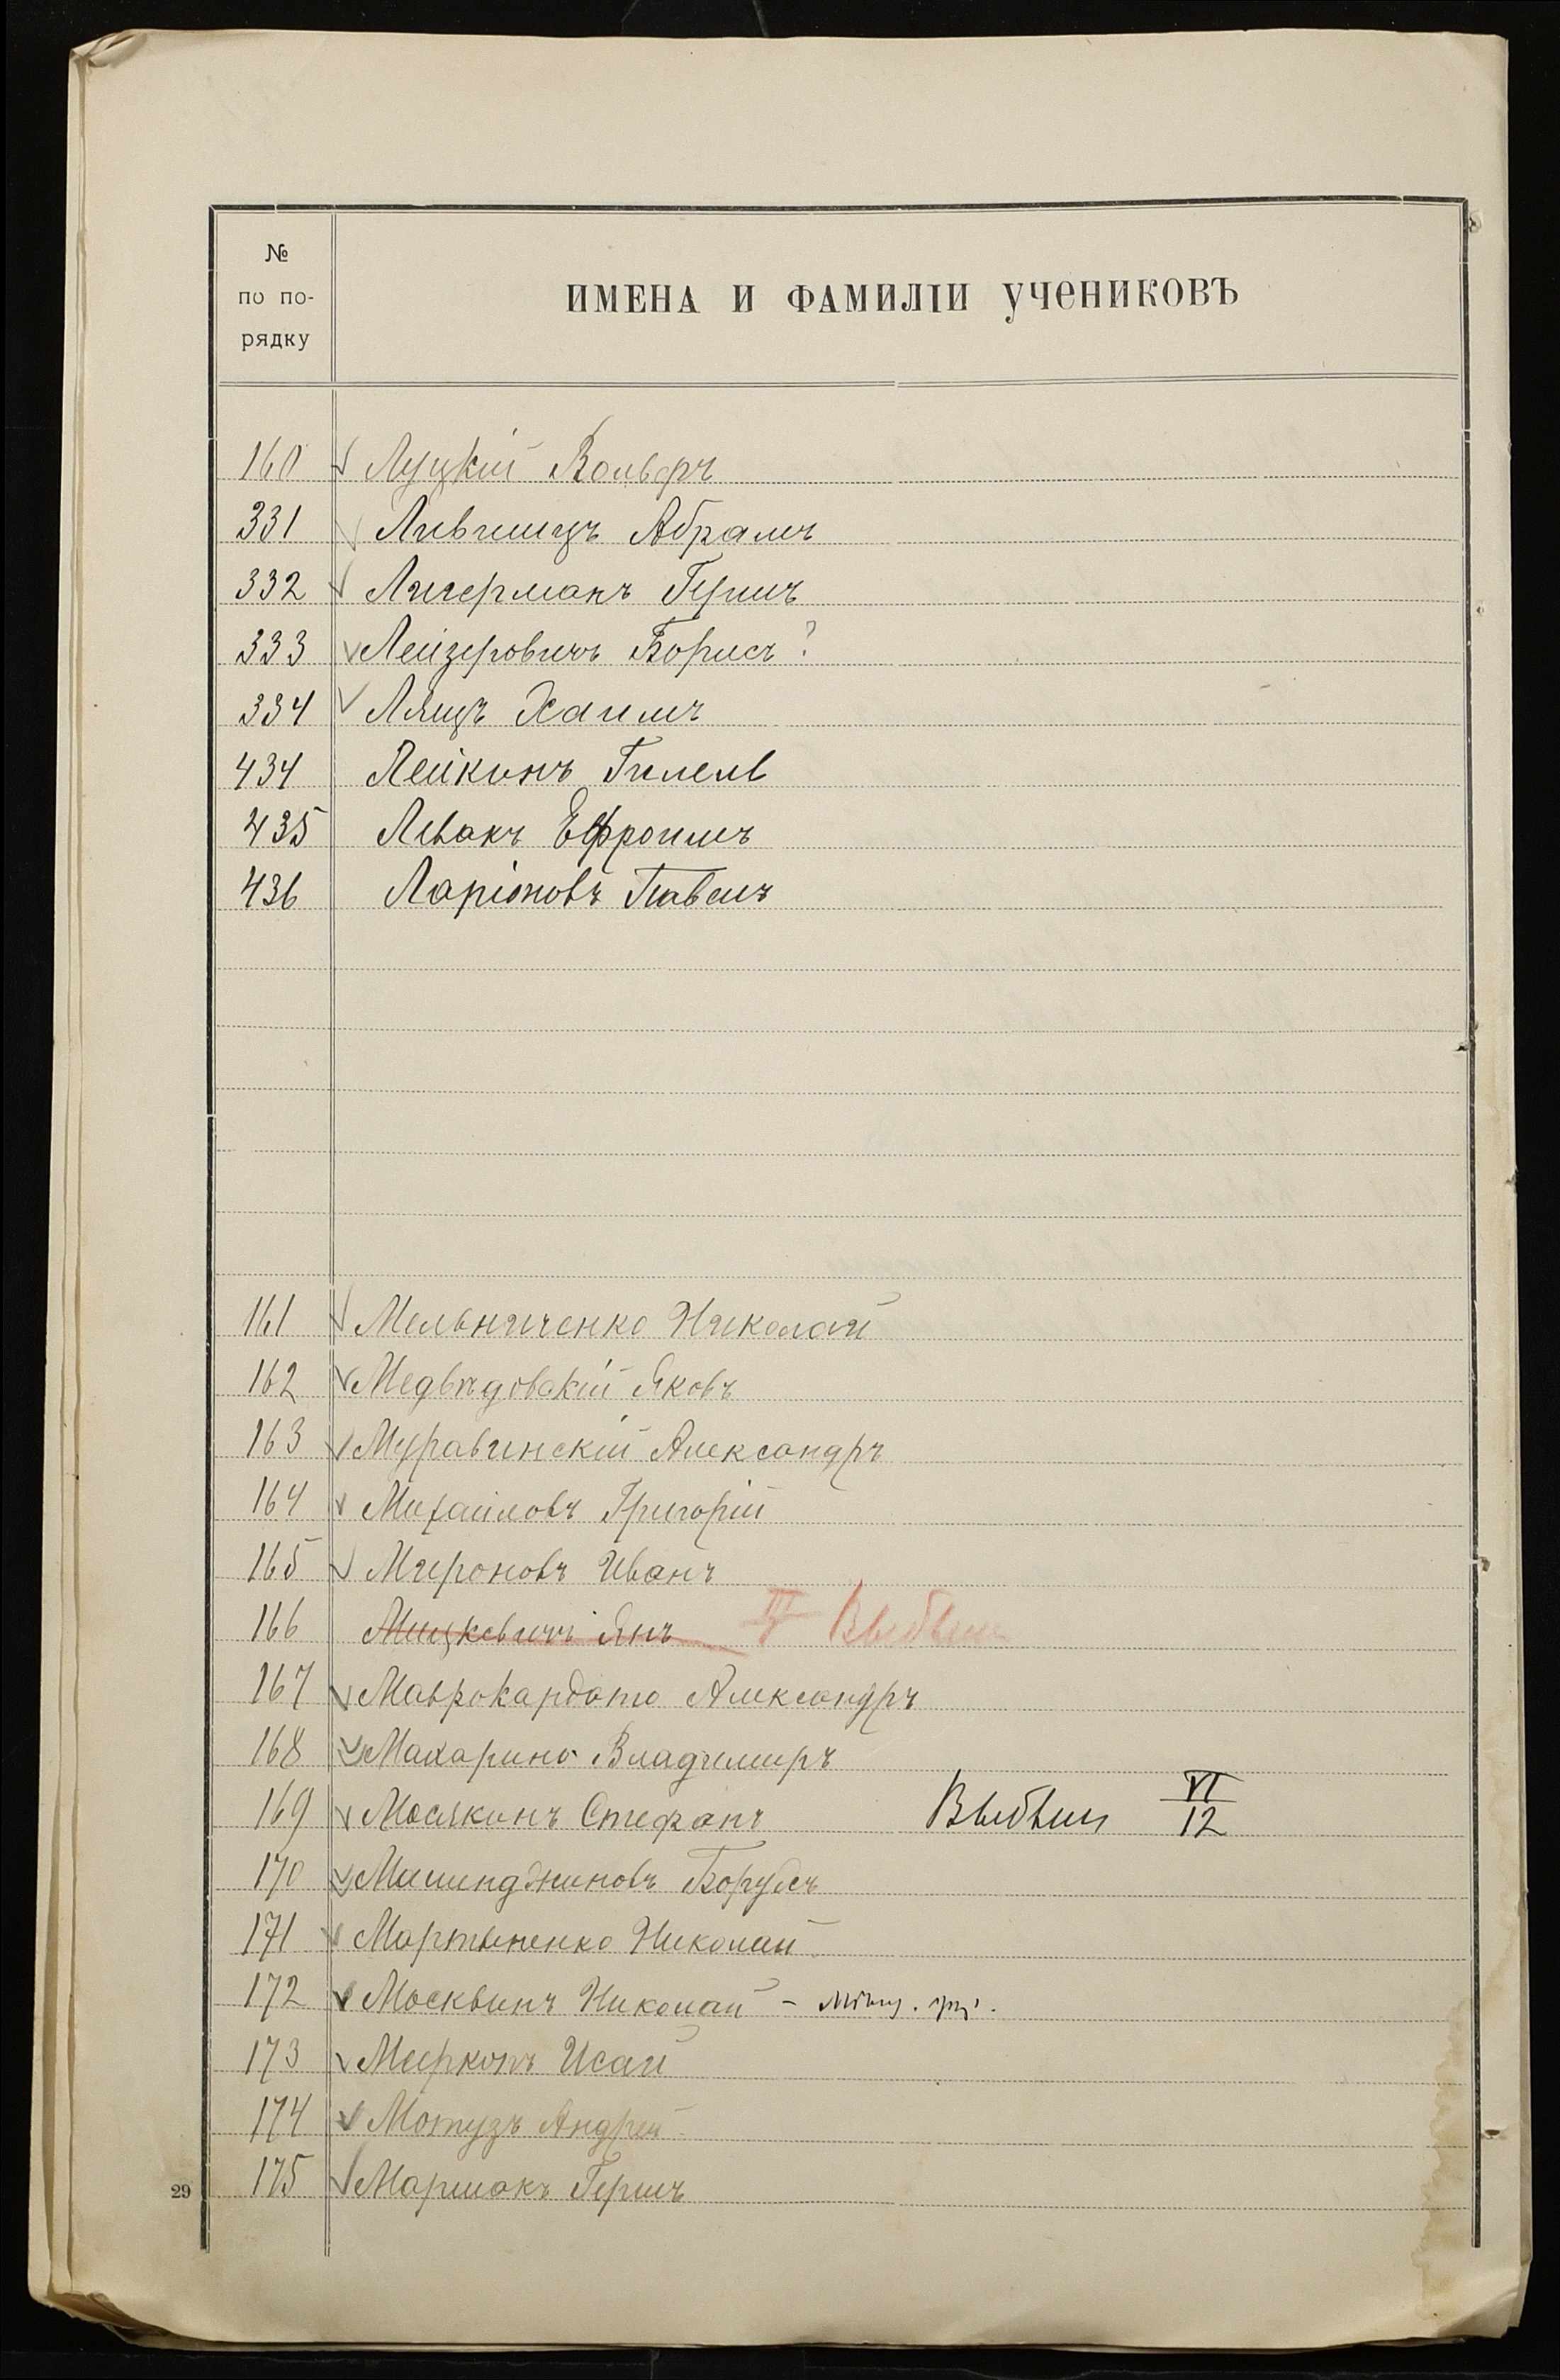 №
по по-
рядку
ИМЕНА И ФАМИЛІИ УЧЕНИКОВЪ
160 Луцкій Вольфъ
331 Лившицъ Абрамъ
332 Лигерманъ Гершъ
333 Лейзеровичъ Борисъ ?
334 Лящъ Хаимъ
434 Лейкинъ Гилель
435 Левакъ Ефроимъ
436 Ларіоновъ Павелъ
161 Мельниченко Николай
162 Медвѣдовскій Яковъ
163 Муравинскій Александръ
164 Михайловъ Григорій
165 Мироновъ Иванъ
166 Мицкевичъ Янъ Выбылъ
167 Маврокардато Александръ
168 Макарино Владимиръ
169 Мосякинъ Стефанъ Выбылъ VI/12
170 Машинджиновъ Борухъ
171 Мартыненко Николай
172 Москвинъ Николай –
173 Меерконъ Исай
174 Мотузъ Андрей
175 Маршакъ Гершъ
29